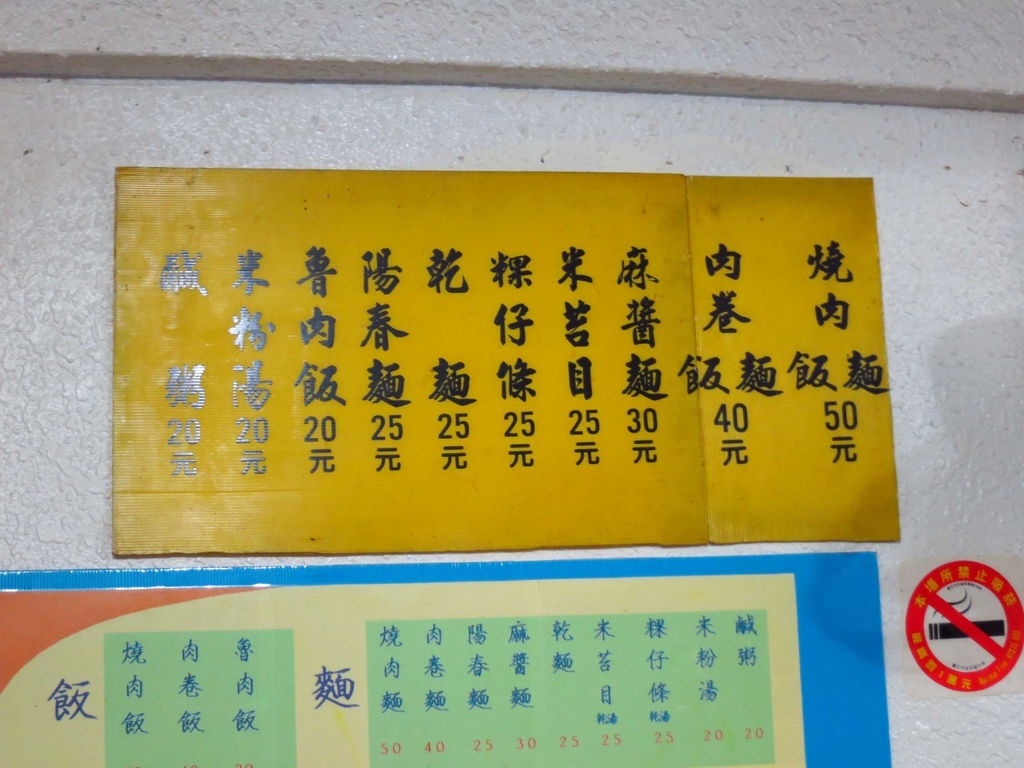 燒肉飯 麵 50元
肉卷飯 麵 40元
麻醬麵 30元
米苔目 25元
粿仔條 25元
乾麵 25元
陽春麵 25元
魯肉飯 20元
米粉陽 20元
鹹粥 20元
飯
燒肉飯
肉卷飯
魯肉飯
麵
燒肉麵 50
肉卷麵 40
陽春麵 25
麻醬麵 30
乾麵 25
米苔目 乾湯 25
粿仔條 乾湯 25
米粉湯 20
鹹粥 20
本場所禁止吸菸